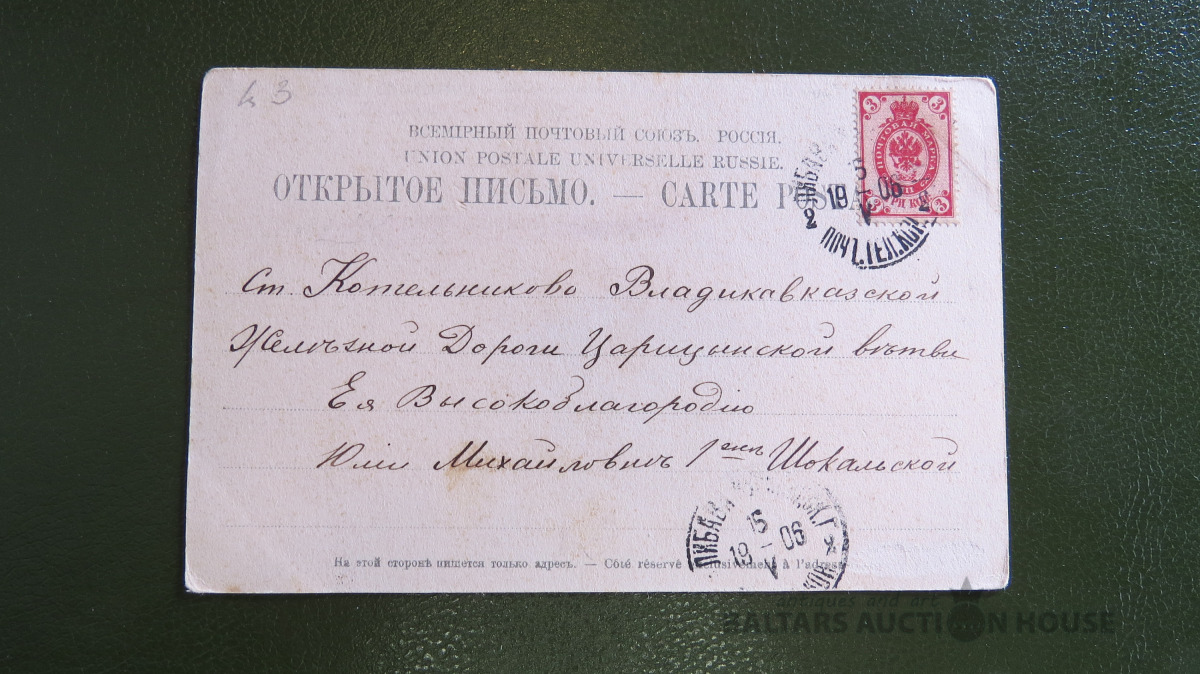 к 3
ВСЕМІРНЫЙ ПОЧТОВЫЙ СОЮЗЪ. РОССІЯ.
UNION POSTALE UNIVERSELLE RUSSIE.
ОТКРЫТОЕ ПИСЬМО. — CARTE POSTA
3 3
ПОЧТОВАЯ МАРКА
ТРИ КОП.
3 3
ЛИБАВА
5
19 06
V
2 2
ПОЧТ.ТЕЛ.КОН.
Ст. Котельниково Владикавказской
Желѣзной Дороги Царицынской вѣтви
Ея Высокоблагородію
Юліи Михайловнѣ Шокальской
ЛИБАВА
15
19 06
V
2
На этой сторонѣ пишется только адресъ. — Côté réservé exclusivement à l'adresse
antiques and art
BALTARS AUCTION HOUSE